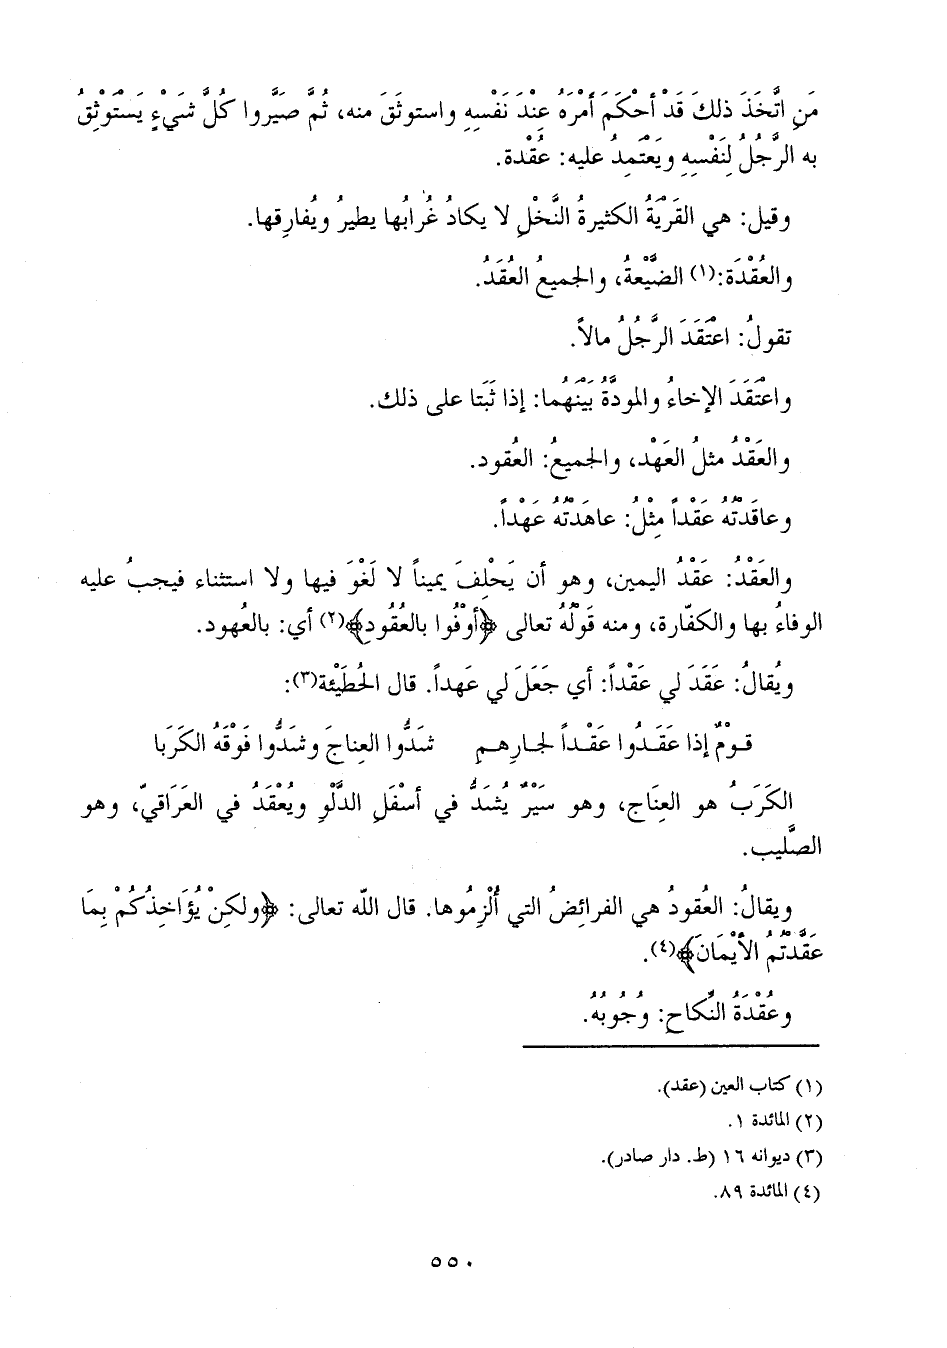 مَنِ اتَّخَذَ ذلكَ قَدْ أَحْكَمَ أَمْرَهُ عِنْدَ نَفْسِهِ واستوثَقَ منه، ثُمَّ صَيَّروا كُلَّ شَيْءٍ يَسْتَوْثِقُ
به الرَّجُلُ لِنَفْسِهِ ويَعْتَمِدُ عليه: عُقْدة.
وقيل: هي القَرْيَةُ الكثيرةُ النَّخْلِ لا يكادُ غُرابُها يطيرُ ويُفارِقها.
والعُقْدَة:(١) الضَّيْعةُ، والجميعُ العُقَدُ.
تقولُ: اعْتَقَدَ الرَّجُلُ مالاً.
واعْتَقَدَ الإخاءُ والمودَّةُ بَيْنَهُما: إذا ثَبَتا على ذلك.
والعَقْدُ مثلُ العَهْد، والجميعُ: العُقود.
وعاقَدْتُهُ عَقْداً مِثْلُ: عاهَدْتُهُ عَهْداً.
والعَقْدُ: عَقْدُ اليمين، وهو أن يَحْلِفَ يميناً لا لَغْوَ فيها ولا استثناء فيجبُ عليه
الوفاءُ بها والكفّارة، ومنه قَوْلُهُ تعالى ﴿أَوْفُوا بالعُقُودِ﴾(٢) أي: بالعُهود.
ويُقالُ: عَقَدَ لي عَقْداً: أي جَعَلَ لي عَهداً. قال الحُطَيْئة(٣):
قـوْمٌ إذا عَقَـدُوا عَقْـداً لجـارِهـمِ شَدُّوا العِناجَ وشَدُّوا فَوْقَهُ الكَرَبا
الكَرَبُ هو العِنَاج، وهو سَيْرٌ يُشَدُّ في أسْفَلِ الدَّلْوِ ويُعْقَدُ في العَرَاقيّ، وهو
الصَّليب.
ويقالُ: العُقودُ هي الفرائِضُ التي أُلْزِمُوها. قال الله تعالى: ﴿ولكِنْ يُؤَاخِذُكُمْ بِمَا
عَقَّدْتُمُ الأَيْمَانَ﴾(٤).
وعُقْدَةُ النِّكاحِ: وُجُوبُهُ.
(١) كتاب العين (عقد).
(٢) المائدة ١.
(٣) ديوانه ١٦ (ط. دار صادر).
(٤) المائدة ٨٩.
٥٥٠